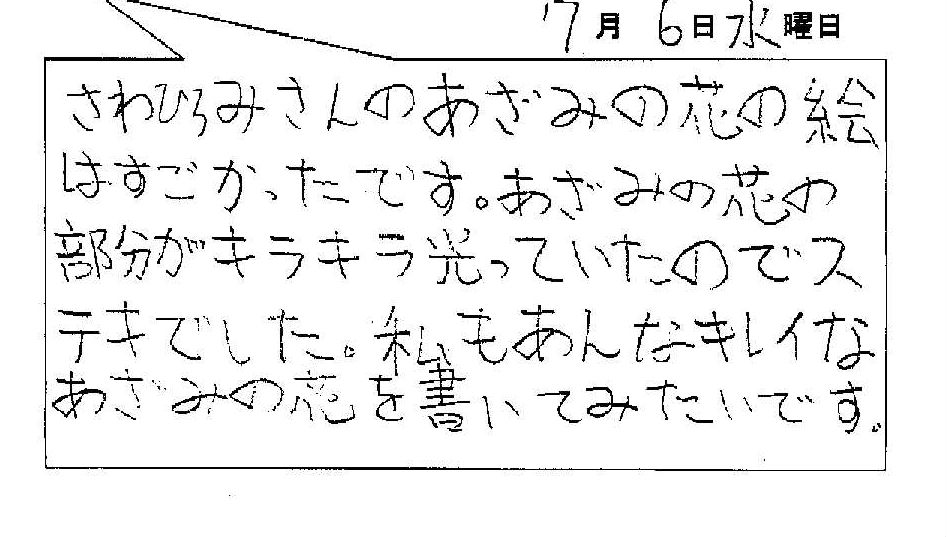 7月 6日 水曜日
さわひろみさんのあざみの花の絵
はすごかったです。あざみの花の
部分がキラキラ光っていたのでス
テキでした。私もあんなキレイな
あざみの花を書いてみたいです。